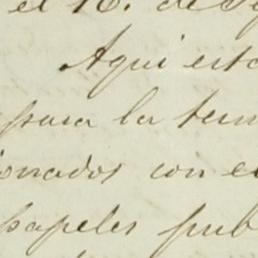 el 16. de
Aquí est
para la tem
ionados con e
papeles pub